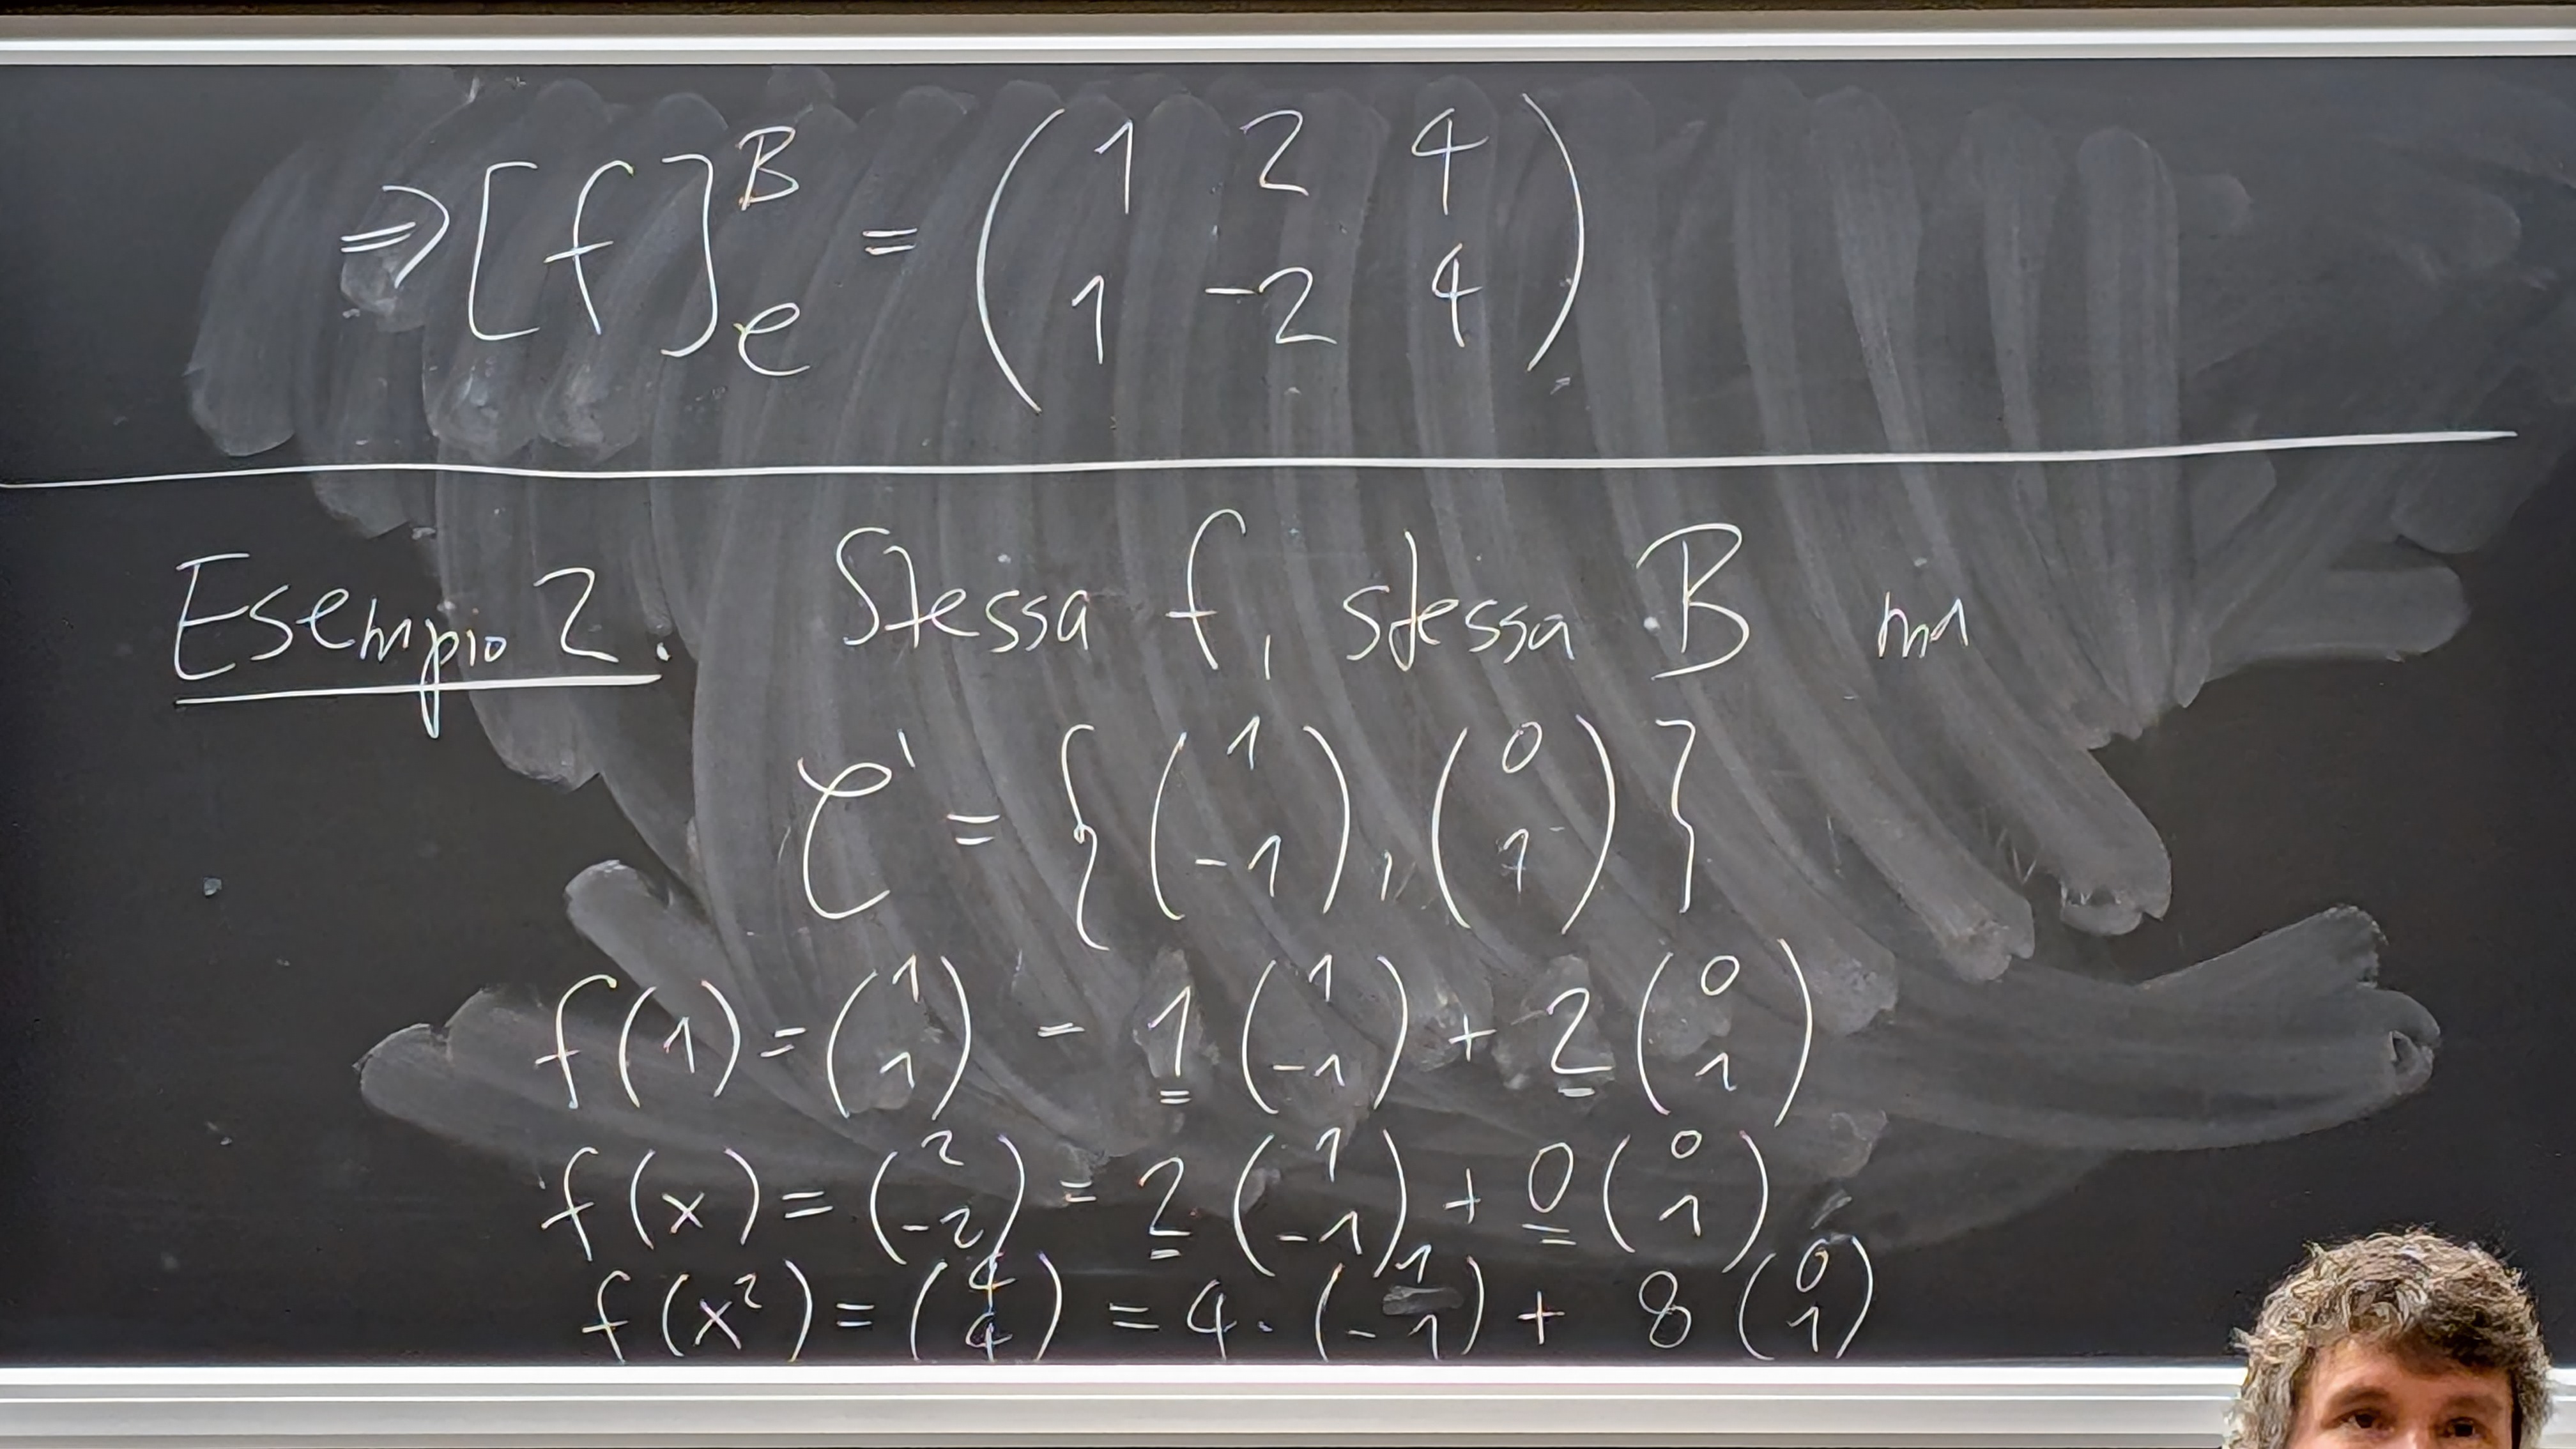 ⇒ [f]_e^B = ( 1 2 4 ; 1 -2 4 )
Esempio 2. Stessa f, stessa B ma
C' = { ( 1 ; -1 ), ( 0 ; 1 ) }
f(1) = ( 1 ; 1 ) = 1 ( 1 ; -1 ) + 2 ( 0 ; 1 )
f(x) = ( 2 ; -2 ) = 2 ( 1 ; -1 ) + 0 ( 0 ; 1 )
f(x²) = ( 4 ; 4 ) = 4 · ( 1 ; -1 ) + 8 ( 0 ; 1 )